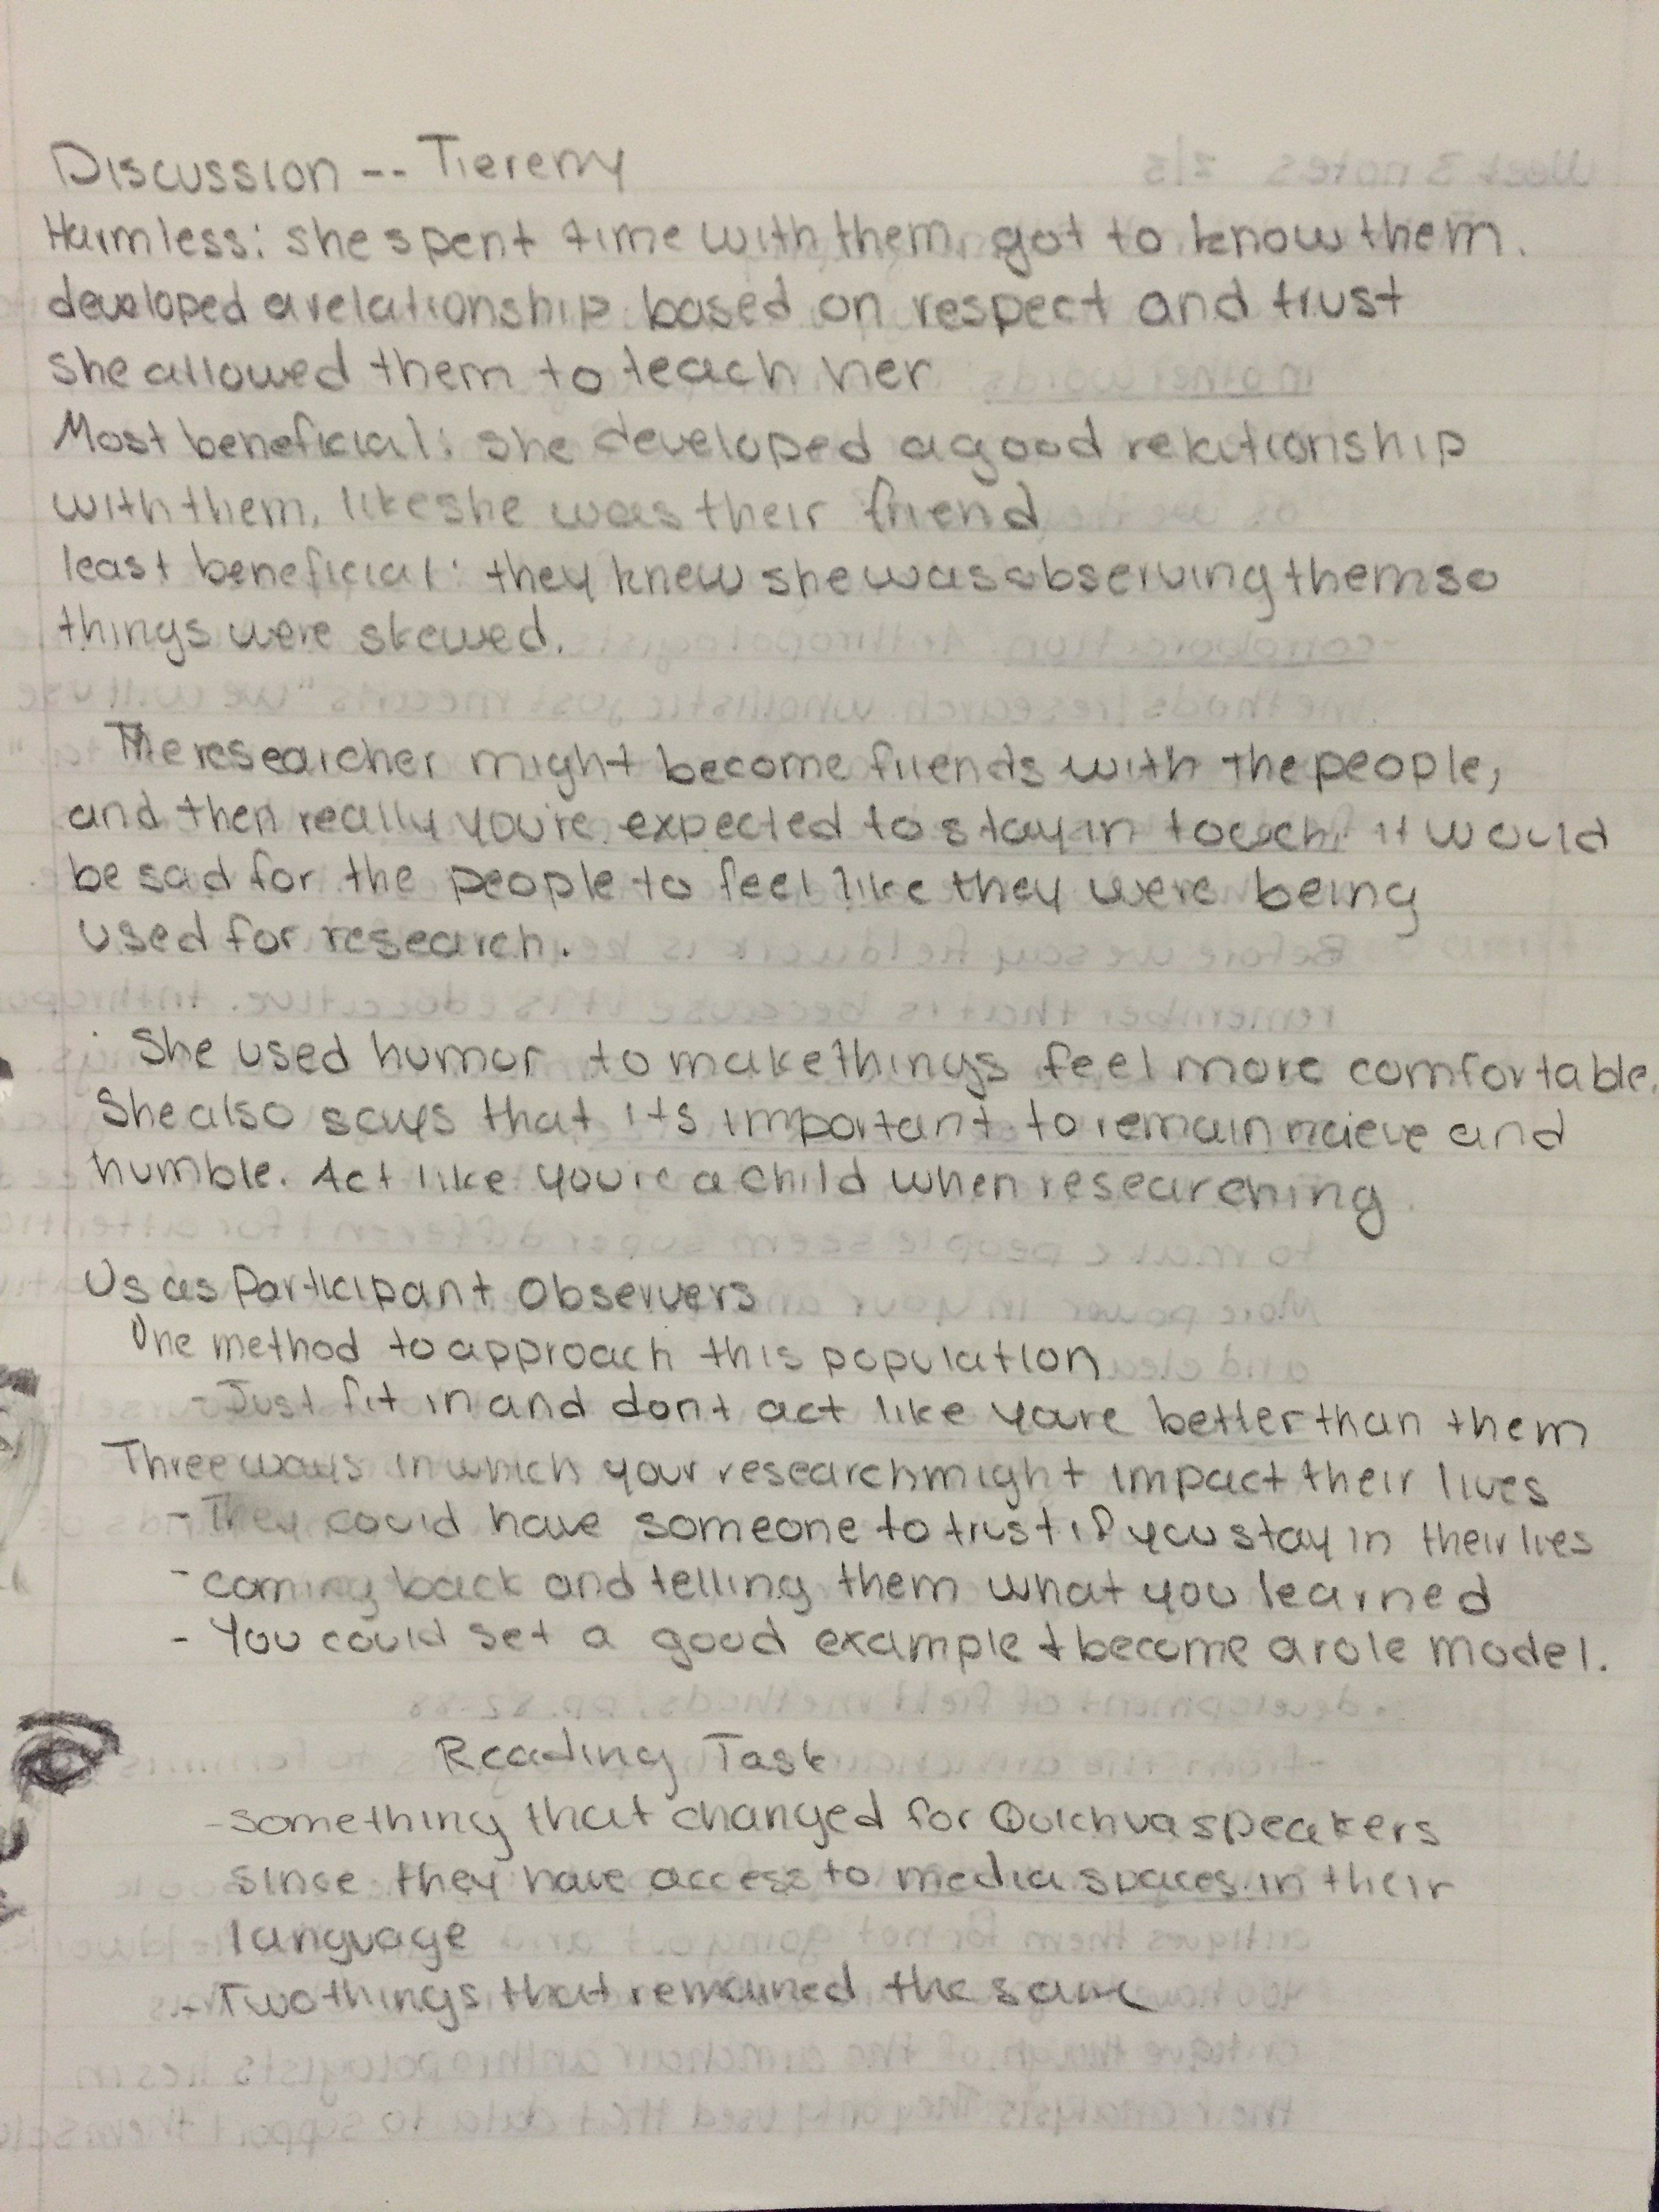 Discussion -- Tieremy
Harmless: she spent time with them, got to know them.
developed a relationship based on respect and trust
she allowed them to teach her
Most beneficial: she developed a good relationship
with them, like she was their friend
least beneficial: they knew she was observing them so
things were skewed.
The researcher might become friends with the people,
and then really you're expected to stay in touch. it would
be sad for the people to feel like they were being
used for research.
She used humor to make things feel more comfortable.
She also says that its important to remain naieve and
humble. Act like you're a child when researching
Us as Participant Observers
One method to approach this population
- Just fit in and dont act like youre better than them
Three ways in which your research might impact their lives
- They could have someone to trust if you stay in their lies
- coming back and telling them what you learned
- You could set a good example + become a role model.
Reading Task
- something that changed for Quichua speakers
since they have access to media spaces in their
language
- Two things that remained the same